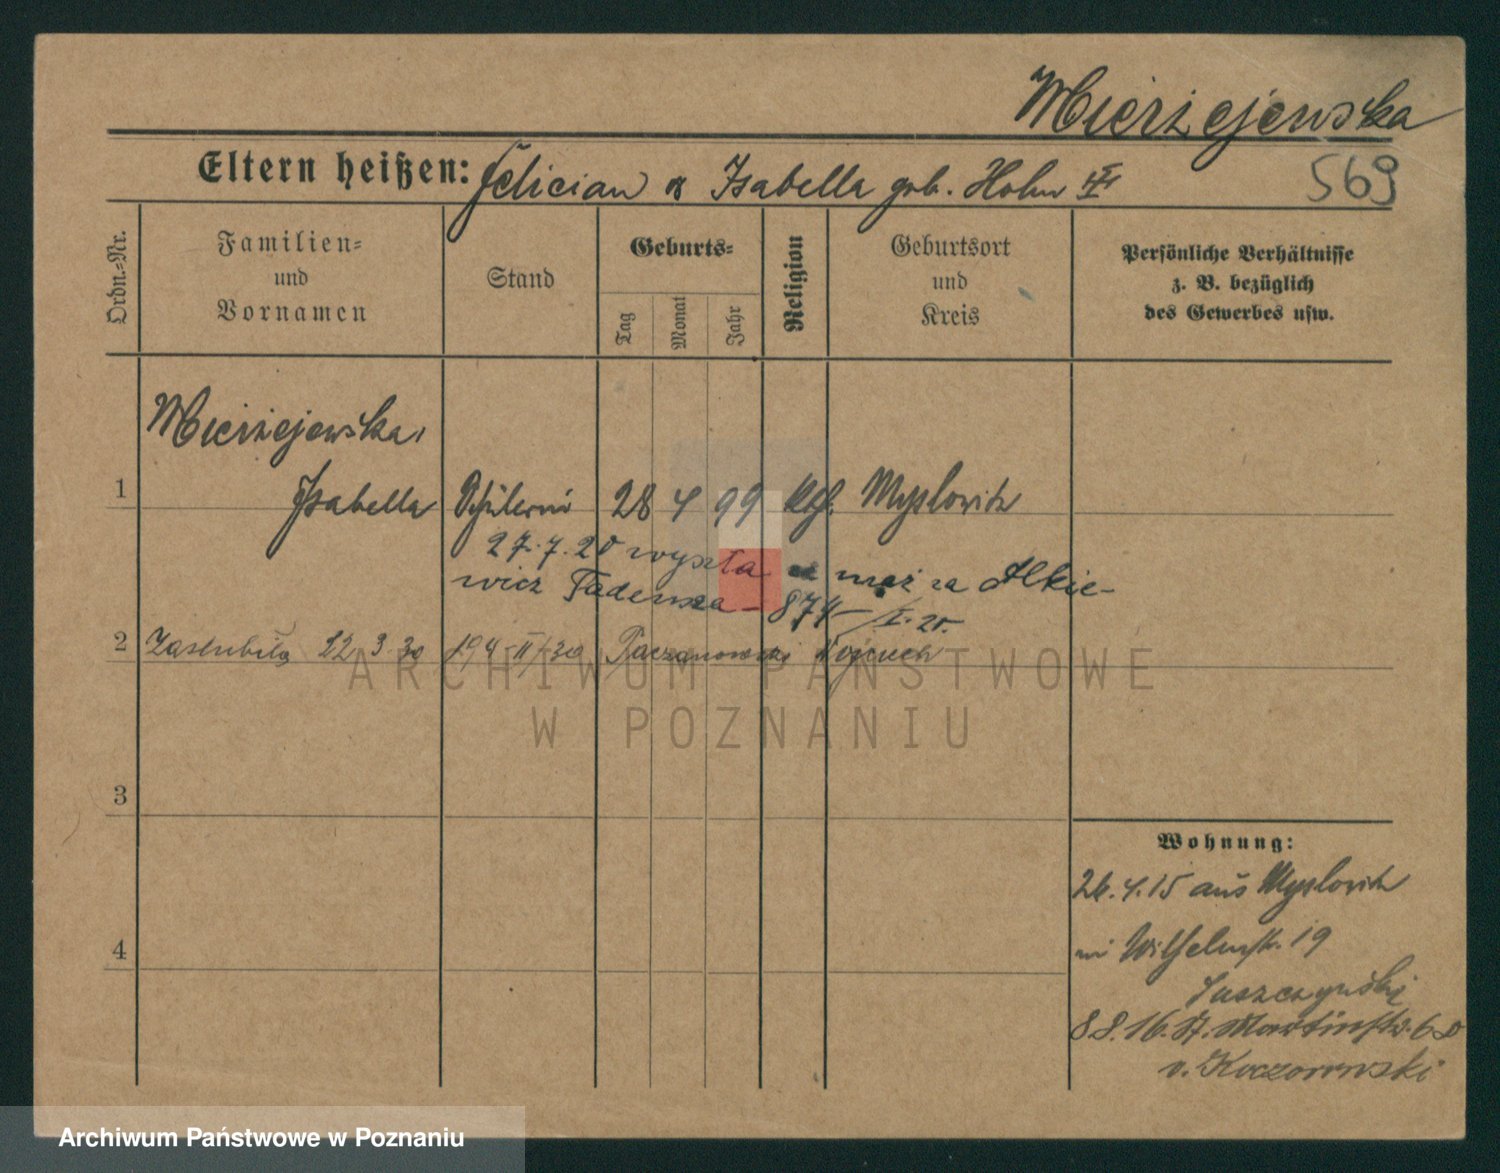 Mierzejewska
Eltern heißen: Felician & Isabella geb. Hohn II
569
Ordn.-Nr.
Familien-
und
Vornamen
Stand
Geburts-
Tag
Monat
Jahr
Religion
Geburtsort
und
Kreis
Persönliche Verhältnisse
z. B. bezüglich
des Gewerbes usw.
Mierzejewska,
1 Isabella Schülerin 28 4 99 kth. Myslowitz
27.7.20 wyszła mąż za Alkie-
wicz Tadeusza - 874 / I. 20.
2 Zaślubiła 22.3.30 194-II/30 Paczanowski Wojciech
3
Wohnung:
26.4.15 aus Myslowitz
Wilhelmstr. 19
Juszczynski
4
8.8.16. St. Martinstr. 60
v. Koczorowski
ARCHIWUM PAŃSTWOWE
W POZNANIU
Archiwum Państwowe w Poznaniu